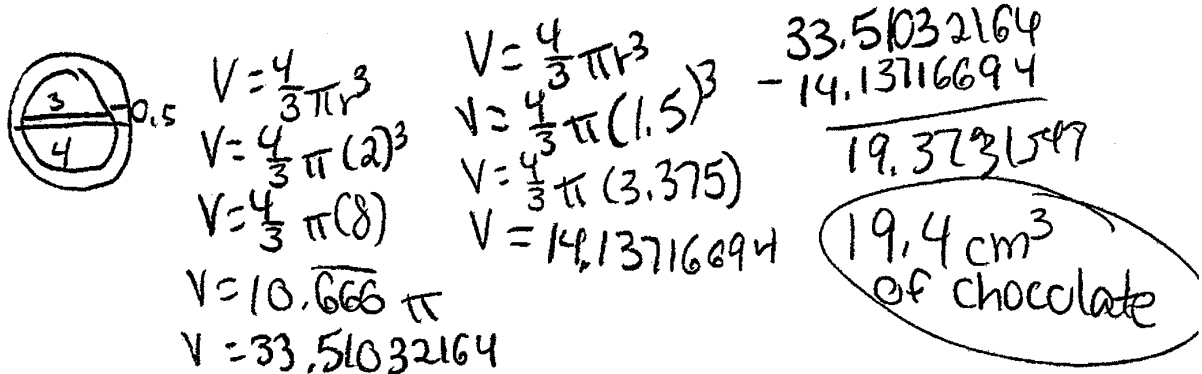 3
0.5
4
V = 4/3 πr³
V = 4/3 π (2)³
V = 4/3 π(8)
V = 10.6̅6̅6̅ π
V = 33.51032164
V = 4/3 πr³
V = 4/3 π(1.5)³
V = 4/3 π (3.375)
V = 14.13716694
33.51032164
- 14.13716694
19.4 cm³
of chocolate